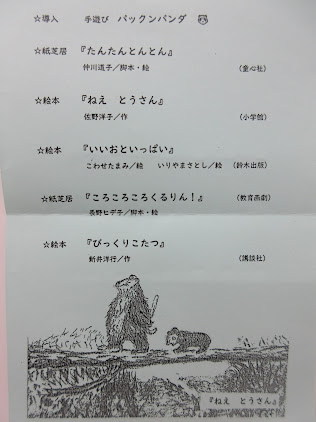 ☆導入　手遊び　パックンパンダ
☆紙芝居　『たんたんとんとん』
仲川道子／脚本・絵　（童心社）
☆絵本　『ねえ　とうさん』
佐野洋子／作　（小学館）
☆絵本　『いいおといっぱい』
こわせたまみ／絵　いりやまさとし／絵　（鈴木出版）
☆紙芝居　『ころころころくるりん！』　（教育画劇）
長野ヒデ子／脚本・絵
☆絵本　『びっくりこたつ』
新井洋行／作　（講談社）
『ねえ　とうさん』